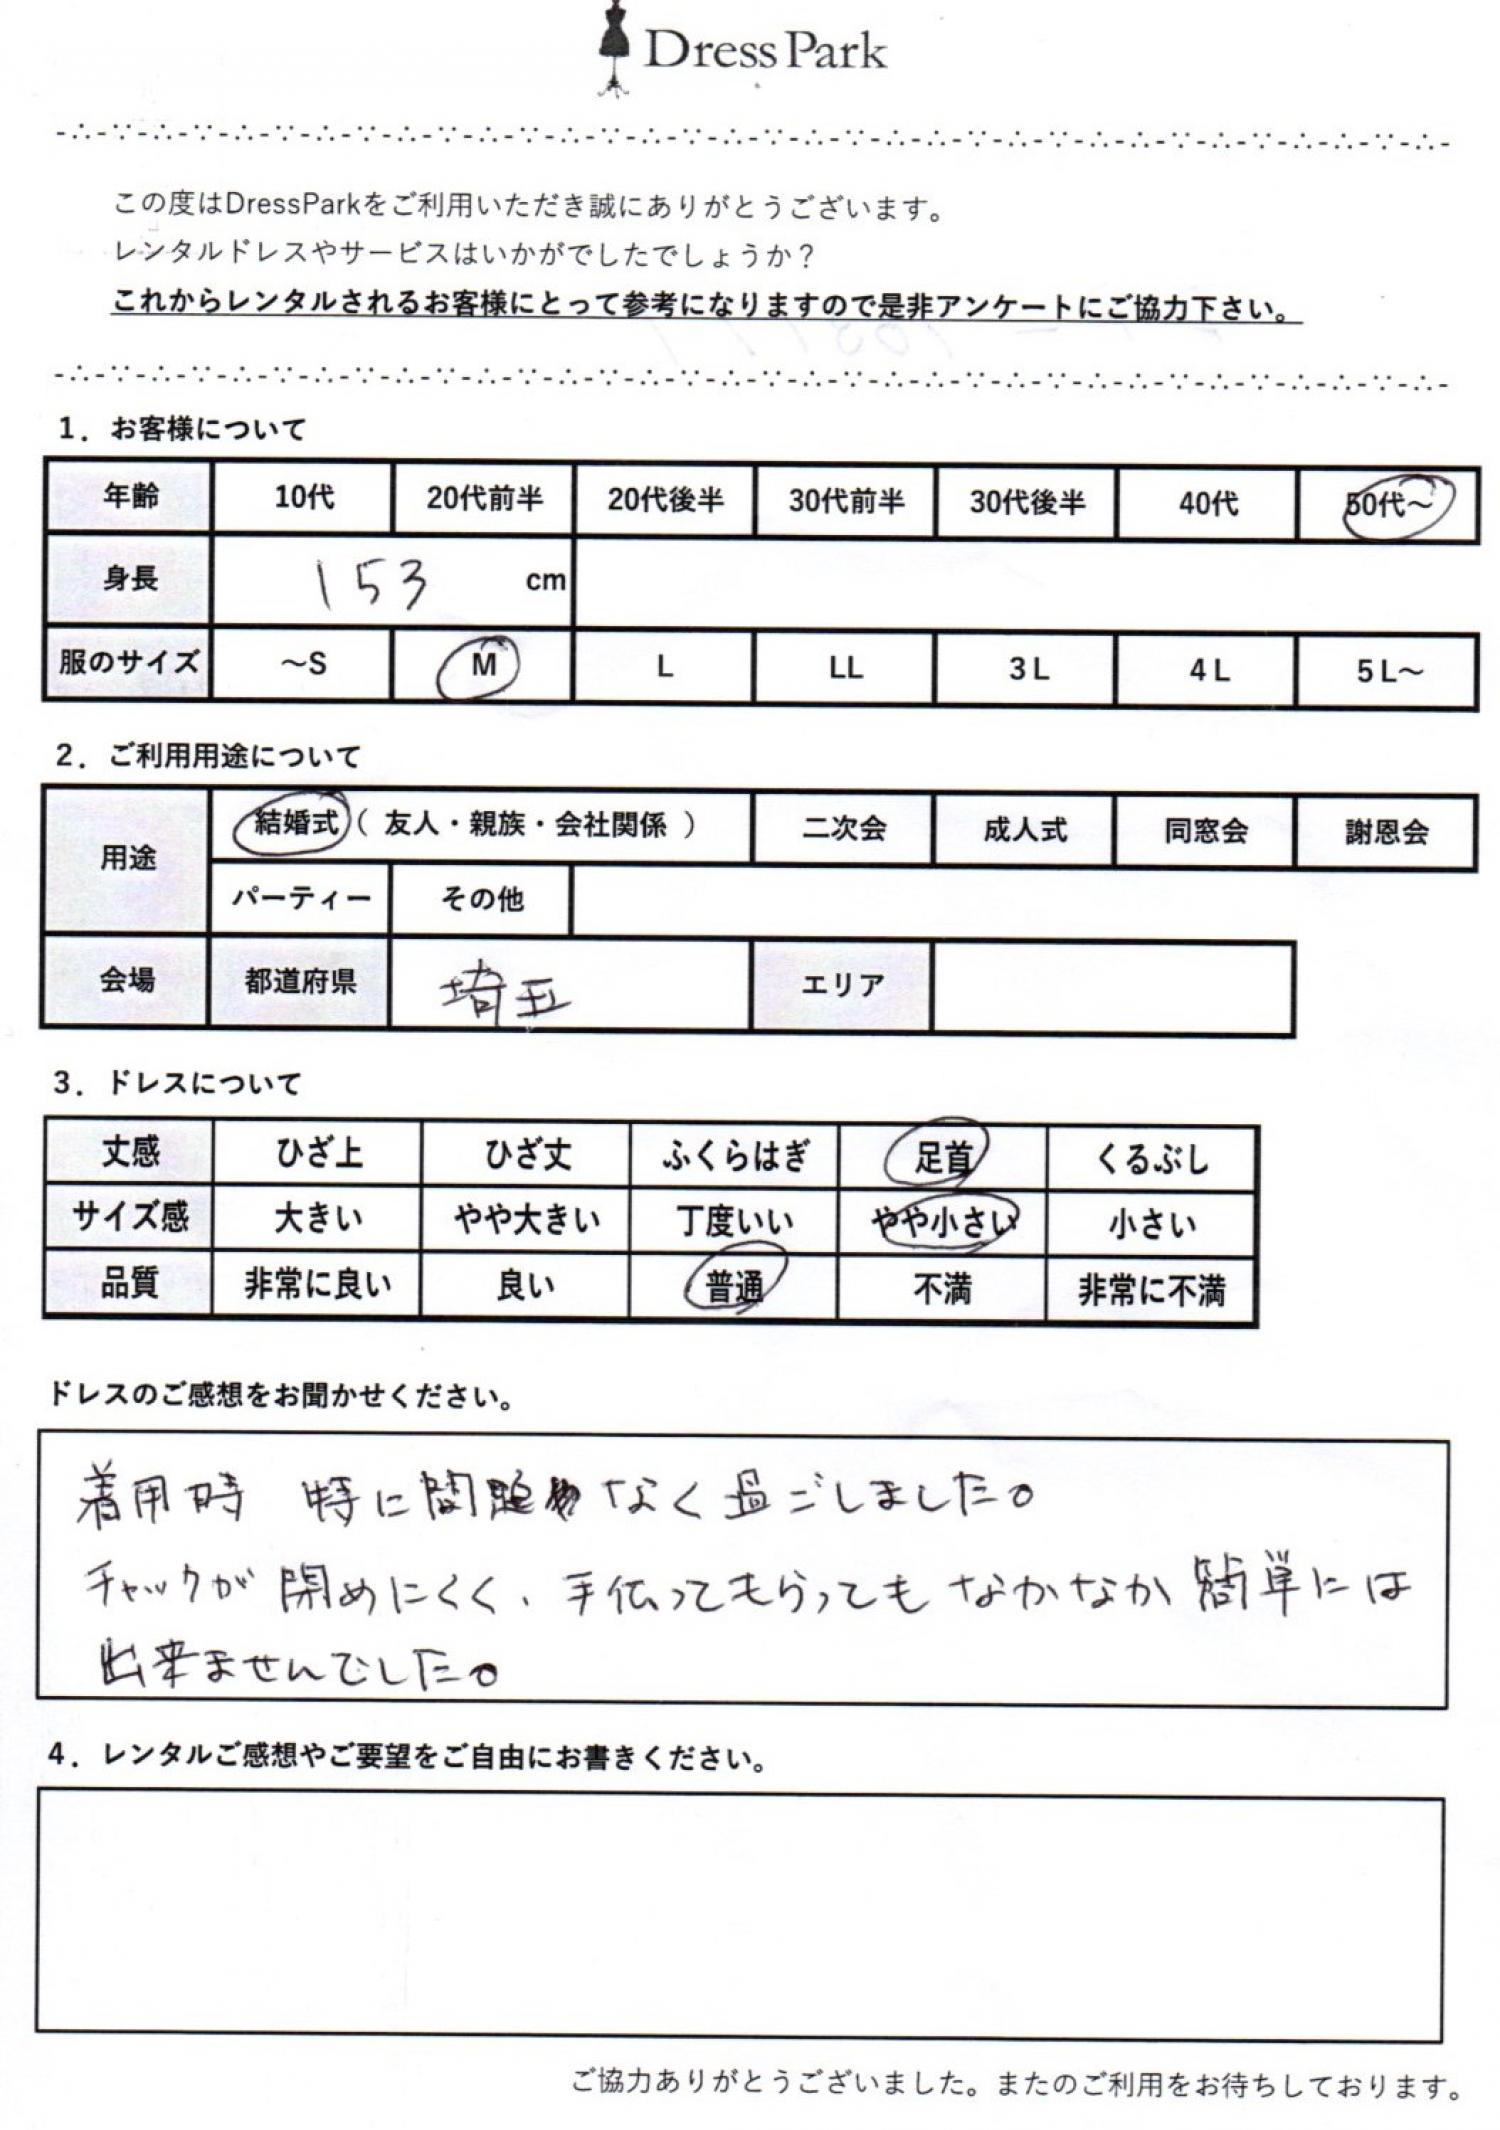 Dress Park
この度はDressParkをご利用いただき誠にありがとうございます。
レンタルドレスやサービスはいかがでしたでしょうか？
これからレンタルされるお客様にとって参考になりますので是非アンケートにご協力下さい。
1．お客様について
年齢 10代 20代前半 20代後半 30代前半 30代後半 40代 50代～
身長 153 cm
服のサイズ ～S M L LL 3L 4L 5L～
2．ご利用用途について
用途 結婚式（ 友人・親族・会社関係 ） 二次会 成人式 同窓会 謝恩会
パーティー その他
会場 都道府県 埼玉 エリア
3．ドレスについて
丈感 ひざ上 ひざ丈 ふくらはぎ 足首 くるぶし
サイズ感 大きい やや大きい 丁度いい やや小さい 小さい
品質 非常に良い 良い 普通 不満 非常に不満
ドレスのご感想をお聞かせください。
着用時 特に問題なく過ごしました。
チャックが閉めにくく、手伝ってもらってもなかなか簡単には
出来ませんでした。
4．レンタルご感想やご要望をご自由にお書きください。
ご協力ありがとうございました。またのご利用をお待ちしております。